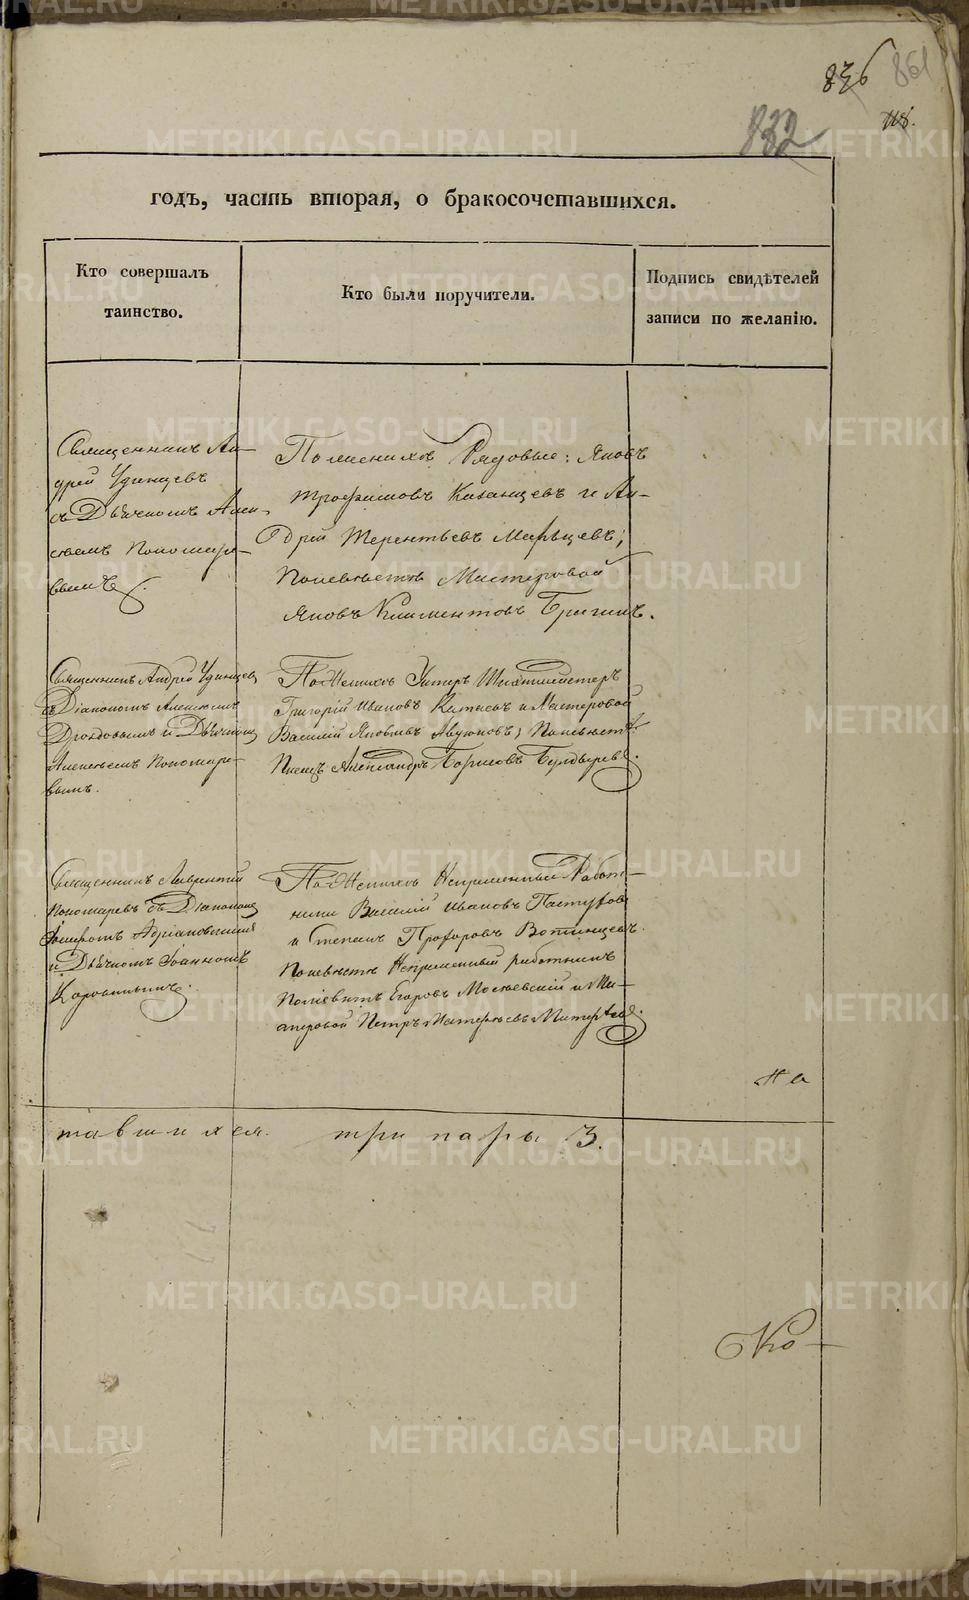 836 861
832
118.
годъ, часть вторая, о бракосочетавшихся.
Кто совершалъ
таинство.
Кто были поручители.
Подпись свидѣтелей
записи по желанію.
Священникъ Ан-
дрей Удинцевъ
съ Дьячкомъ Алек-
сѣемъ Пономаре-
вымъ.
По женихѣ Рядовые: Яковъ
Трофимовъ Казанцевъ и Ан-
дрей Терентьевъ Мальцевъ;
по невѣстѣ Мастеровой
Яковъ Климентовъ Брагинъ.
Священникъ Андрей Удинцевъ
съ Діакономъ Алексѣемъ
Дроздовымъ и Дьячкомъ
Алексѣемъ Пономаре-
вымъ.
По женихѣ Унтеръ Шихтмейстеръ
Григорій Ивановъ и Мастеровой
Василій Яковлевъ по невѣстѣ
Писецъ Александръ Борисовъ
Священникъ Лаврентій
Пономаревъ съ Діакономъ
Іосифомъ Адріановскимъ
и Дьячкомъ Іоанномъ
Коровинымъ.
По женихѣ Непремѣнные Работ-
ники Василій Ивановъ Пастуховъ
и Степанъ Прохоровъ Вотинцевъ.
по невѣстѣ Непремѣнный работникъ
Егоровъ и Ма-
стеровой Петръ
На
тавшихся. три пары 3.
Ко-
METRIKI.GASO-URAL.RU